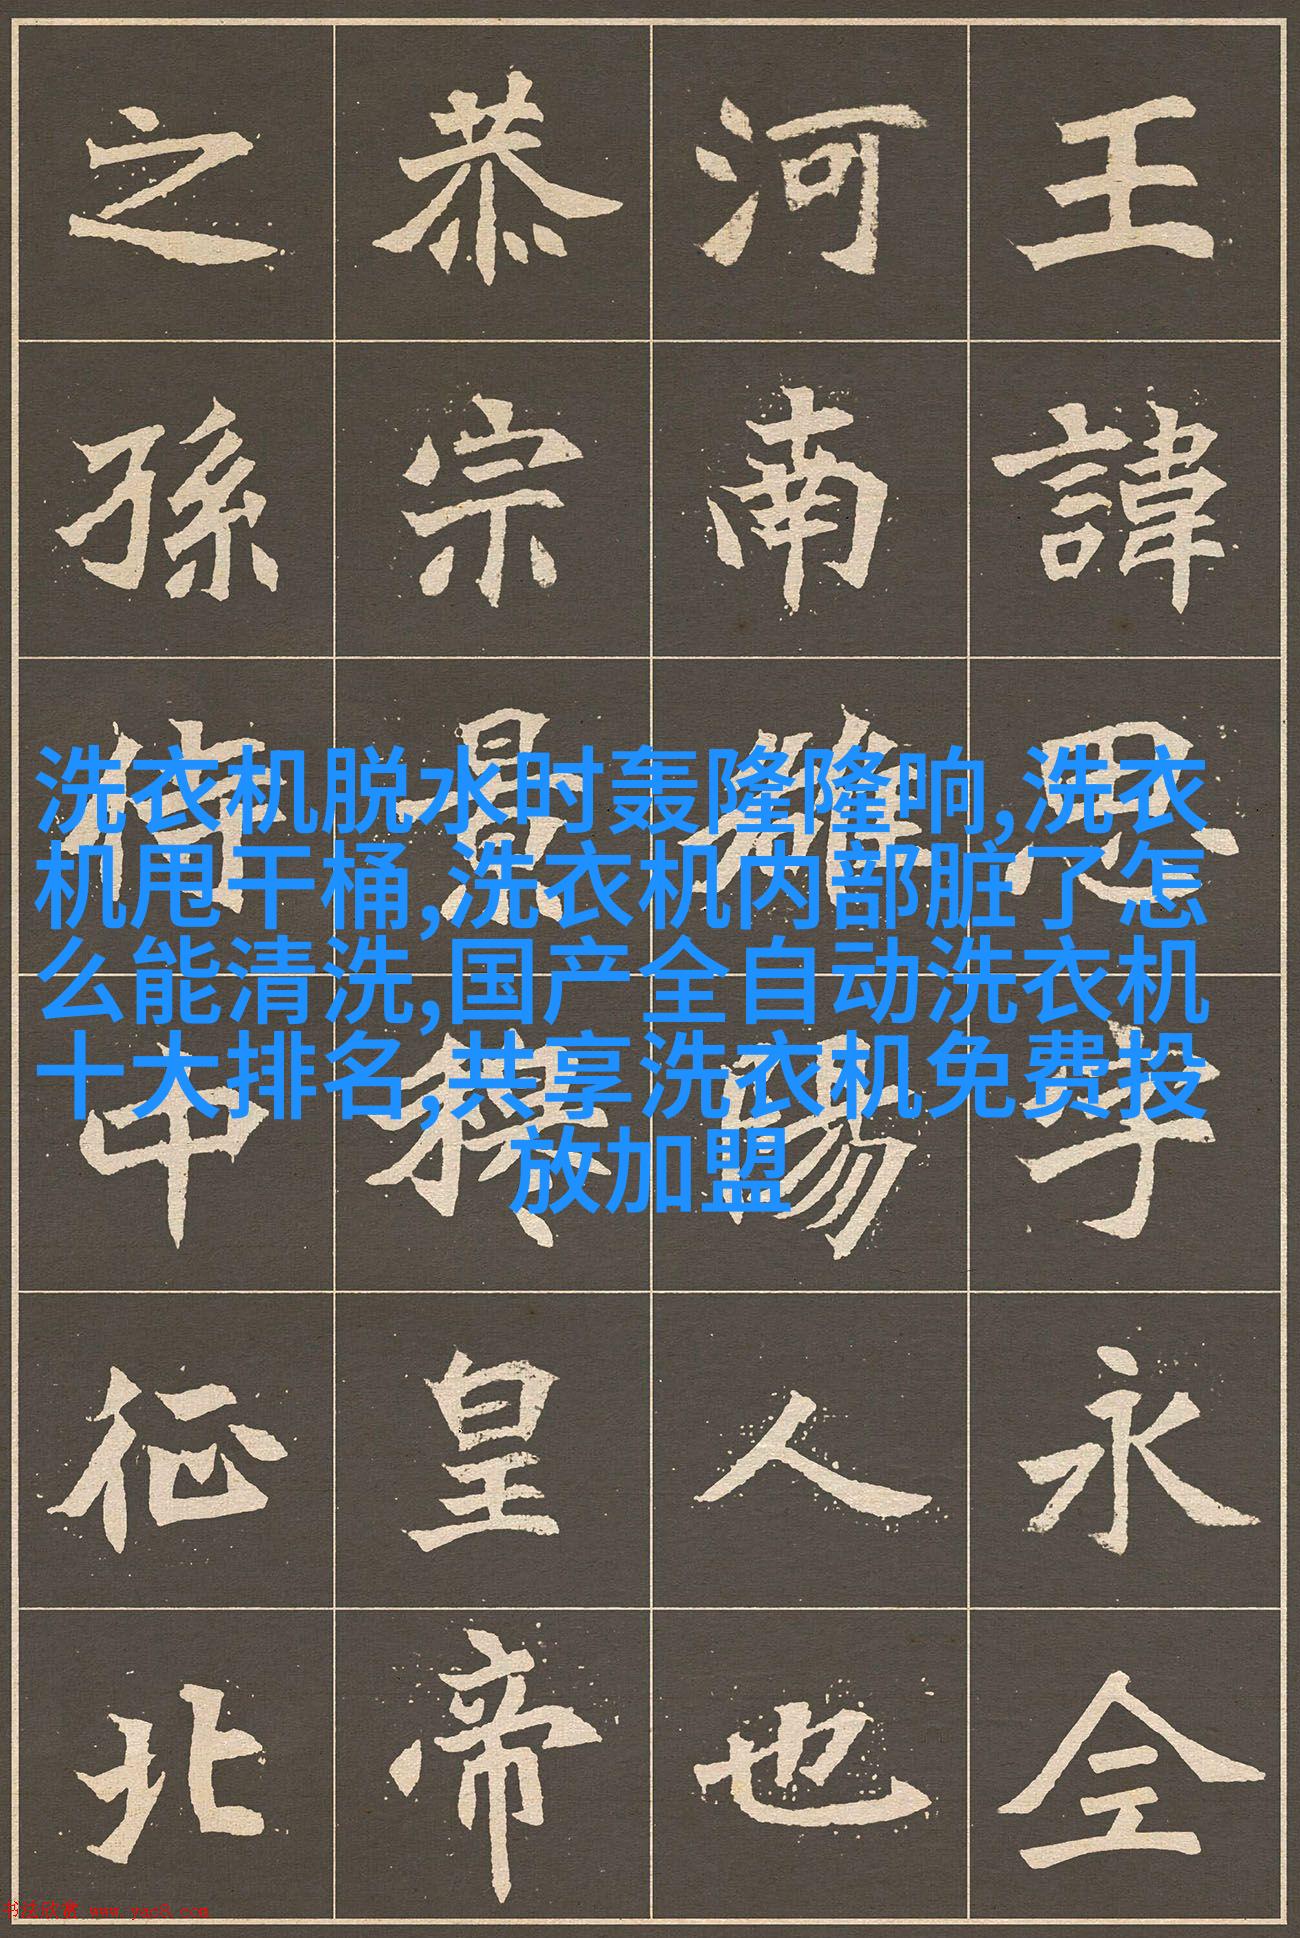 王諱思字永全
河南陽人也
恭宗景穆皇帝
之孫中征北
洗衣机脱水时轰隆隆响,洗衣
机甩干桶,洗衣机内部脏了怎
么能清洗,国产全自动洗衣机
十大排名,共享洗衣机免费投
放加盟
书法欣赏 www.yac8.com